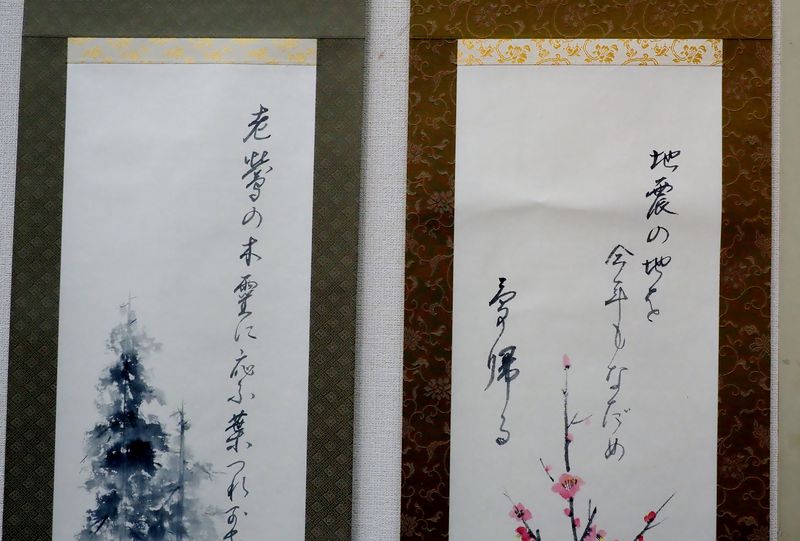 地震の地を
今年もなだめ
帰る
老鶯の木霊に応ふ葉つれ